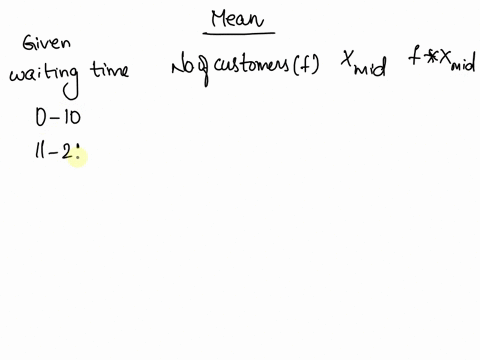 Mean
Given
waiting time No of customers (f) Xmid f*Xmid
0-10
11-2